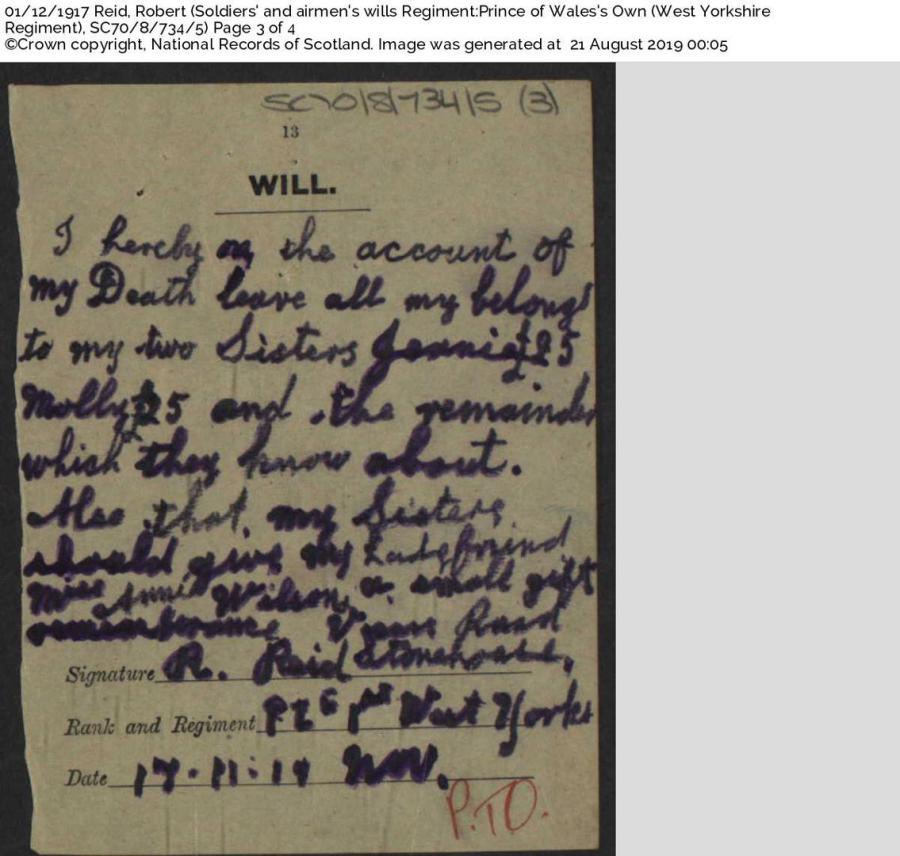 01/12/1917 Reid, Robert (Soldiers' and airmen's wills Regiment:Prince of Wales's Own (West Yorkshire
Regiment), SC70/8/734/5) Page 3 of 4
©Crown copyright, National Records of Scotland. Image was generated at 21 August 2019 00:05
SC70/8/734/5 (3)
13
WILL.
I hereby on the account of
my Death leave all my belongs
to my two Sisters Jeanie £25
Molly £25 and the remainder
which they know about.
Also that my Sisters
should give my Ladyfriend
Miss Annie Wilson, a small gift
remembrance Road
Signature R. Reid Stonehouse,
Rank and Regiment Pte 1st West Yorks
Date 17.11.14 Nov.
P.T.O.